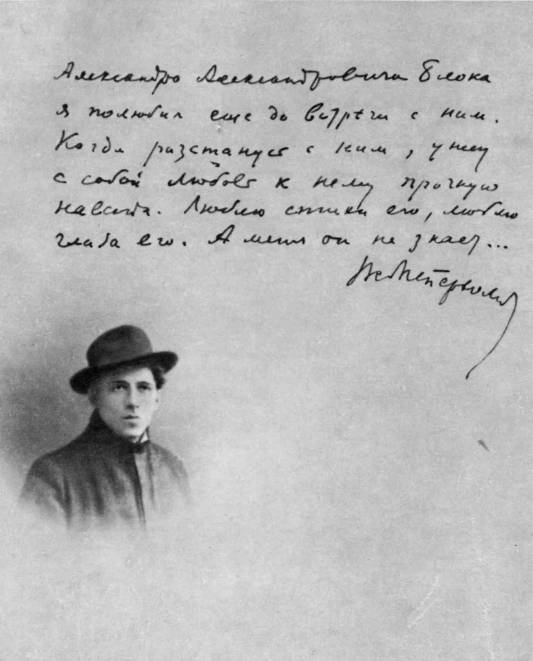 Александра Александровича Блока
я полюбил еще до встрѣчи с ним.
Когда разстанусь с ним, унесу
с собой любовь к нему прочную
навсегда. Люблю стихи его, люблю
глаза его. А меня он не знает...
Вс Мейерхольд